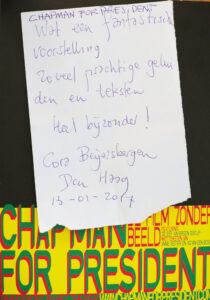 CHAPMAN FOR PRESIDENT
Wat een fantastisch
voorstelling
Zoveel prachtige gelui
den en teksten
Heel bijzonder!
Cora Beijersbergen
Den Haag
13-01-2017
CHAPMAN
FILM ZONDER
BEELD
FOR PRESIDENT